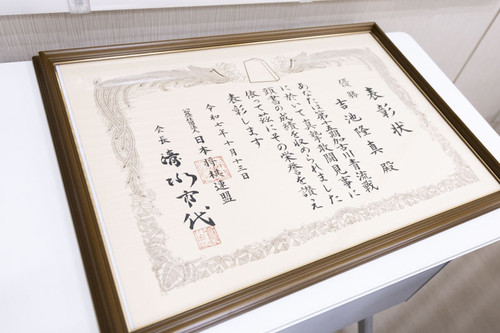 表彰状
優勝 吉池隆真殿
あなたは第十五期加古川青流戦
に於いて真摯敢闘見事に
頭書の成績を収められました
依って茲にその栄誉を讃え
表彰します
令和七年十月十三日
公益社団法人 日本将棋連盟
会長 清水市代